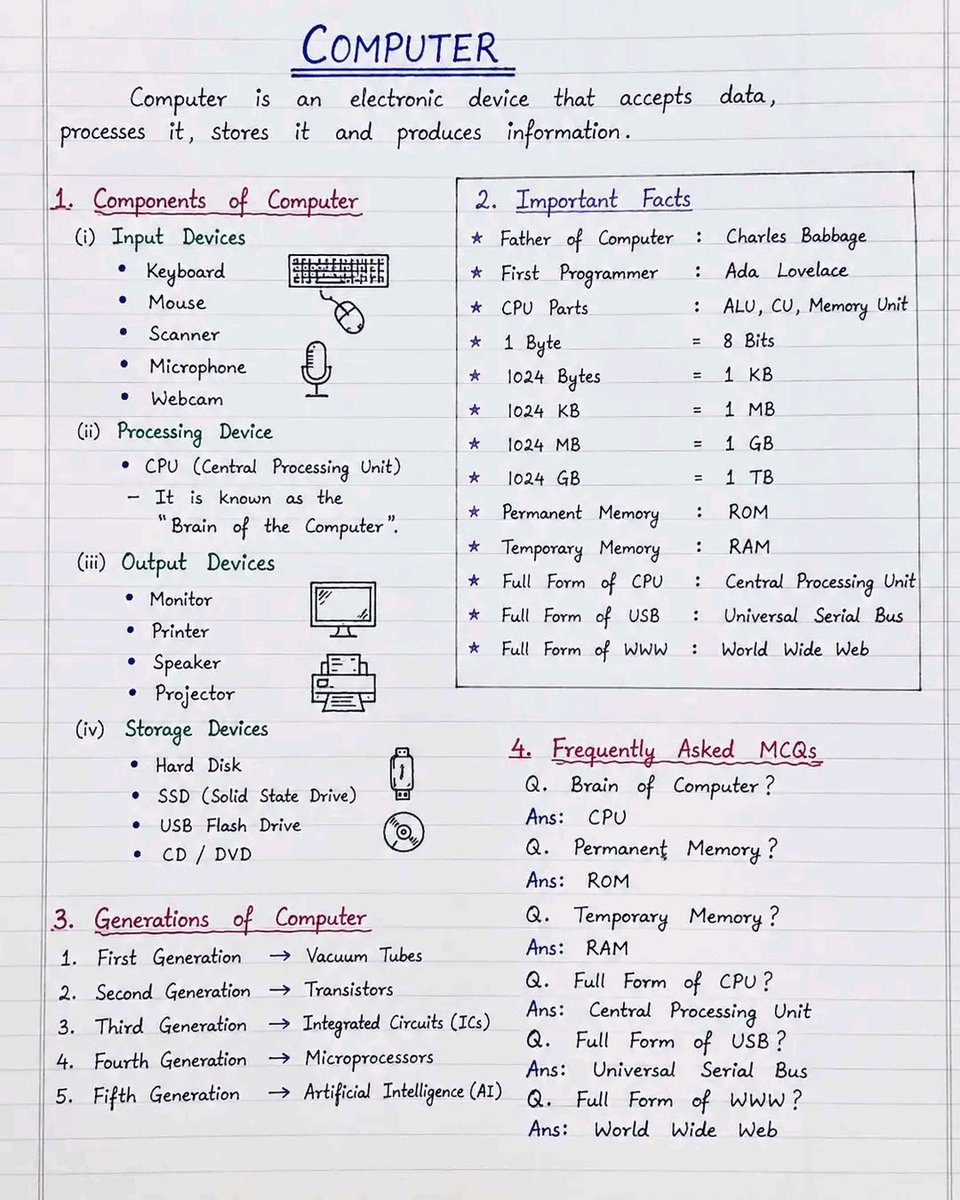 COMPUTER
Computer is an electronic device that accepts data,
processes it, stores it and produces information.
1. Components of Computer
(i) Input Devices
• Keyboard
• Mouse
• Scanner
• Microphone
• Webcam
(ii) Processing Device
• CPU (Central Processing Unit)
– It is known as the
"Brain of the Computer".
(iii) Output Devices
• Monitor
• Printer
• Speaker
• Projector
(iv) Storage Devices
• Hard Disk
• SSD (Solid State Drive)
• USB Flash Drive
• CD / DVD
2. Important Facts
★ Father of Computer : Charles Babbage
★ First Programmer : Ada Lovelace
★ CPU Parts : ALU, CU, Memory Unit
★ 1 Byte = 8 Bits
★ 1024 Bytes = 1 KB
★ 1024 KB = 1 MB
★ 1024 MB = 1 GB
★ 1024 GB = 1 TB
★ Permanent Memory : ROM
★ Temporary Memory : RAM
★ Full Form of CPU : Central Processing Unit
★ Full Form of USB : Universal Serial Bus
★ Full Form of WWW : World Wide Web
3. Generations of Computer
1. First Generation → Vacuum Tubes
2. Second Generation → Transistors
3. Third Generation → Integrated Circuits (ICs)
4. Fourth Generation → Microprocessors
5. Fifth Generation → Artificial Intelligence (AI)
4. Frequently Asked MCQs
Q. Brain of Computer?
Ans: CPU
Q. Permanent Memory?
Ans: ROM
Q. Temporary Memory?
Ans: RAM
Q. Full Form of CPU?
Ans: Central Processing Unit
Q. Full Form of USB?
Ans: Universal Serial Bus
Q. Full Form of WWW?
Ans: World Wide Web